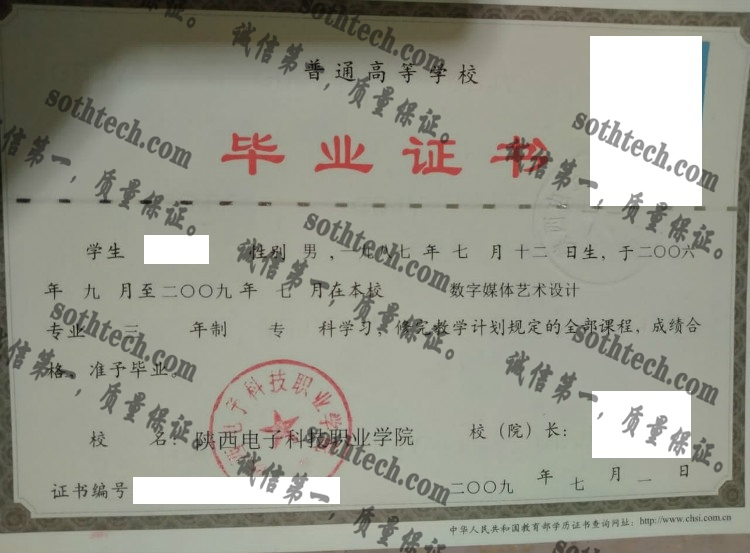 普通高等学校
毕业证书
学生 性别 男 ,一九八七 年 七 月 十二 日生, 于二〇〇六
年 九 月至二〇〇九 年 七 月在本校 数字媒体艺术设计
专业 三 年制 专 科学习, 修完教学计划规定的全部课程, 成绩合
格, 准予毕业。
校 名: 陕西电子科技职业学院 校 (院) 长:
证书编号 二〇〇九 年 七 月 一 日
中华人民共和国教育部学历证书查询网址: http://www.chsi.com.cn
sothtech.com
诚信第一, 质量保证。
sothtech.com
诚信第一, 质量保证。
sothtech.com
诚信第一, 质量保证。
sothtech.com
诚信第一, 质量保证。
sothtech.com
诚信第一, 质量保证。
sothtech.com
诚信第一, 质量保证。
sothtech.com
诚信第一, 质量保证。